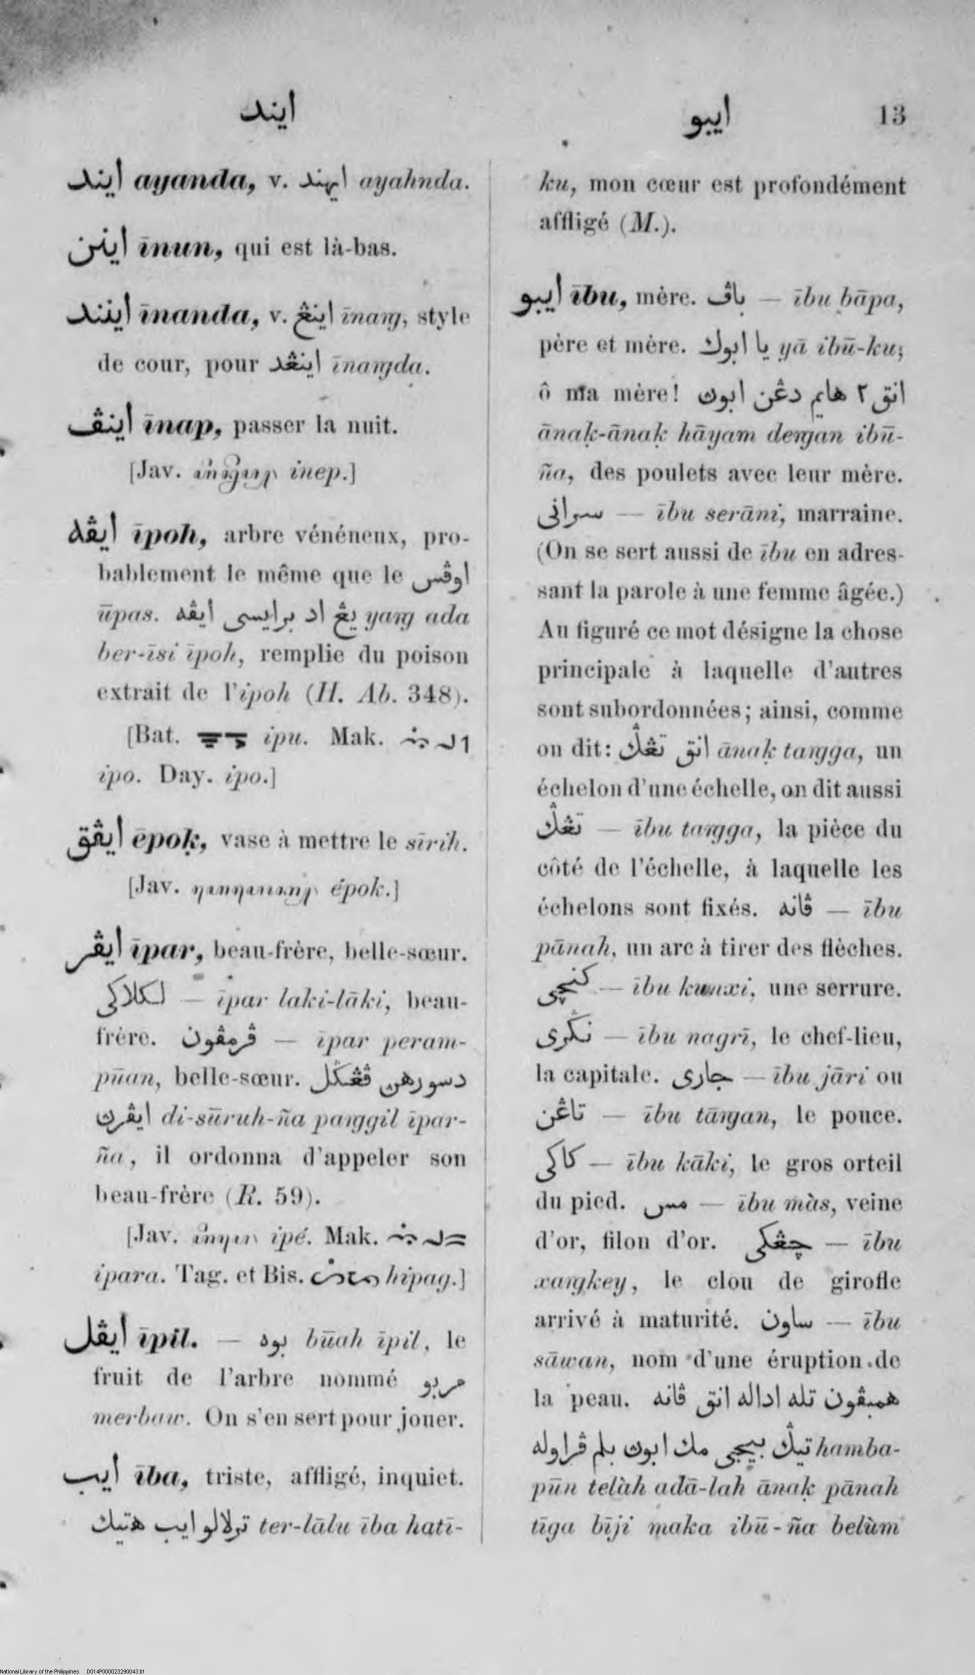 ايند
ايبو 13
ايند ayanda, v. ايهند ayahnda.
اينن īnun, qui est là-bas.
اينند īnanda, v. اينڠ īnaṃg, style
de cour, pour اينڠد īnaṃgda.
اينڤ īnap, passer la nuit.
[Jav. inep.]
ايڤه īpoh, arbre vénéneux, pro-
bablement le même que le اوڤس
ūpas. يڠ اد برايسى ايڤه yaṃg ada
ber-īsi īpoh, remplie du poison
extrait de l'ipoh (H. Ab. 348).
[Bat. ipu. Mak.
ipo. Day. ipo.]
ايڤق ēpoḳ, vase à mettre le sīrih.
[Jav. épok.]
ايڤر īpar, beau-frère, belle-sœur.
لکلاکى — īpar laki-lāki, beau-
frère. ڤرمڤون — īpar peram-
pūan, belle-sœur. دسورهن ڤڠݢل
ايڤرن di-sūruh-ña paṃggil īpar-
ña, il ordonna d'appeler son
beau-frère (R. 59).
[Jav. ipé. Mak.
ipara. Tag. et Bis. hipag.]
ايڤل īpil. — بوه būah īpil, le
fruit de l'arbre nommé مربو
merbaw. On s'en sert pour jouer.
ايبība, triste, affligé, inquiet.
ترلالو ايب هتيك ter-lālu ība hatī-
ku, mon cœur est profondément
affligé (M.).
ايبو ību, mère. باڤ — ību bāpa,
père et mère. يا ابوك yā ibū-ku,
ô ma mère! انق٢ هايم دڠن ابون
ānaḳ-ānaḳ hāyam deṃgan ibū-
ña, des poulets avec leur mère.
سرانى — ību serāni, marraine.
(On se sert aussi de ību en adres-
sant la parole à une femme âgée.)
Au figuré ce mot désigne la chose
principale à laquelle d'autres
sont subordonnées; ainsi, comme
on dit: انق تڠݢ ānaḳ taṃgga, un
échelon d'une échelle, on dit aussi
تڠݢ — ību taṃgga, la pièce du
côté de l'échelle, à laquelle les
échelons sont fixés. ڤانه — ību
pānah, un arc à tirer des flèches.
کنچى — ību kunxi, une serrure.
نݢرى — ību nagrī, le chef-lieu,
la capitale. جارى — ību jāri ou
تاڠن — ību tāṃgan, le pouce.
کاکى — ību kāki, le gros orteil
du pied. مس — ību màs, veine
d'or, filon d'or. چڠکى — ību
xaṃgkey, le clou de girofle
arrivé à maturité. ساون — ību
sāwan, nom d'une éruption de
la peau. همبڤون تله اداله انق ڤانه
تيݢ بيجى مك ابون بلم ڤراوله hamba-
pūn telàh adā-lah ānaḳ pānah
tīga bīji maka ibū-ña belùm
National Library of the Philippines